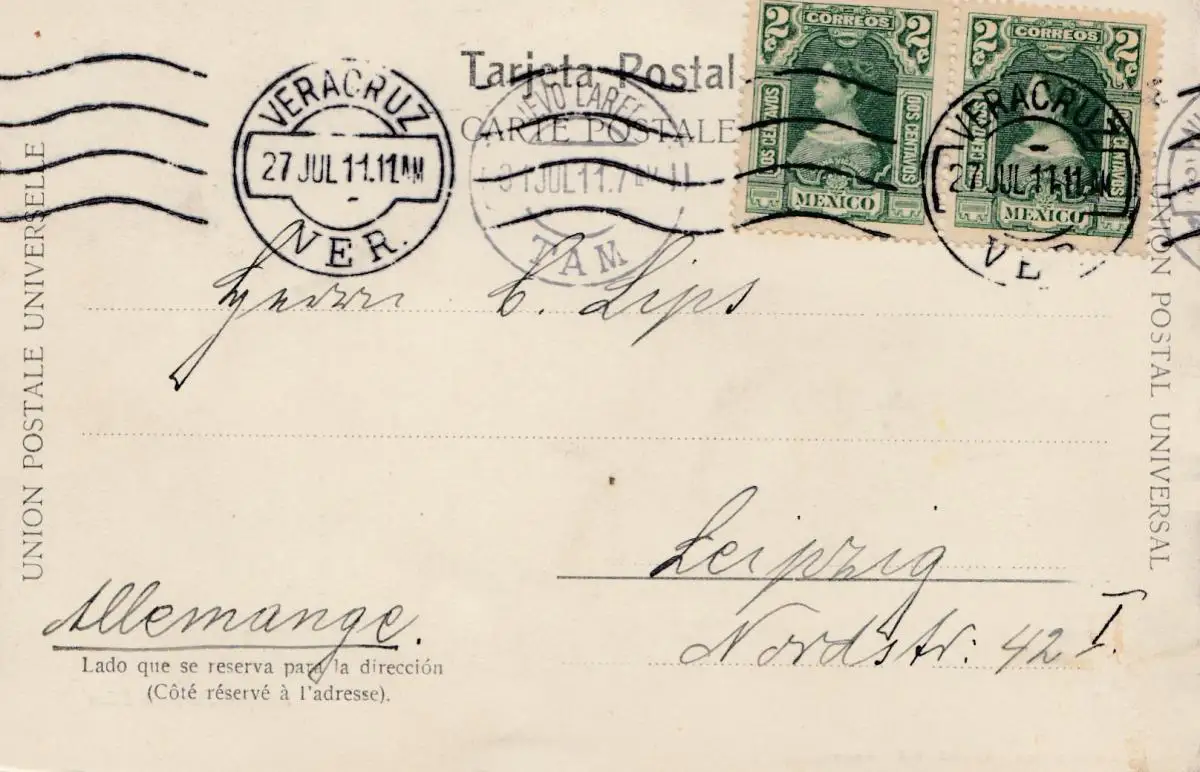 Tarjeta Postal
CARTE POSTALE
UNION POSTALE UNIVERSELLE
UNION POSTAL UNIVERSAL
VERACRUZ
27 JUL 11.11AM
VER.
NUEVO LAREDO
31 JUL 11.7 AM
TAM
2 CORREOS 2
DOS CENTAVOS
DOS CENTAVOS
MEXICO
2 CORREOS 2
DOS CENTAVOS
DOS CENTAVOS
MEXICO
VERACRUZ
27 JUL 11.11AM
VER
Herrn C. Lips
Leipzig
Nordstr: 42 I.
Allemange.
Lado que se reserva para la dirección
(Côté réservé à l'adresse).